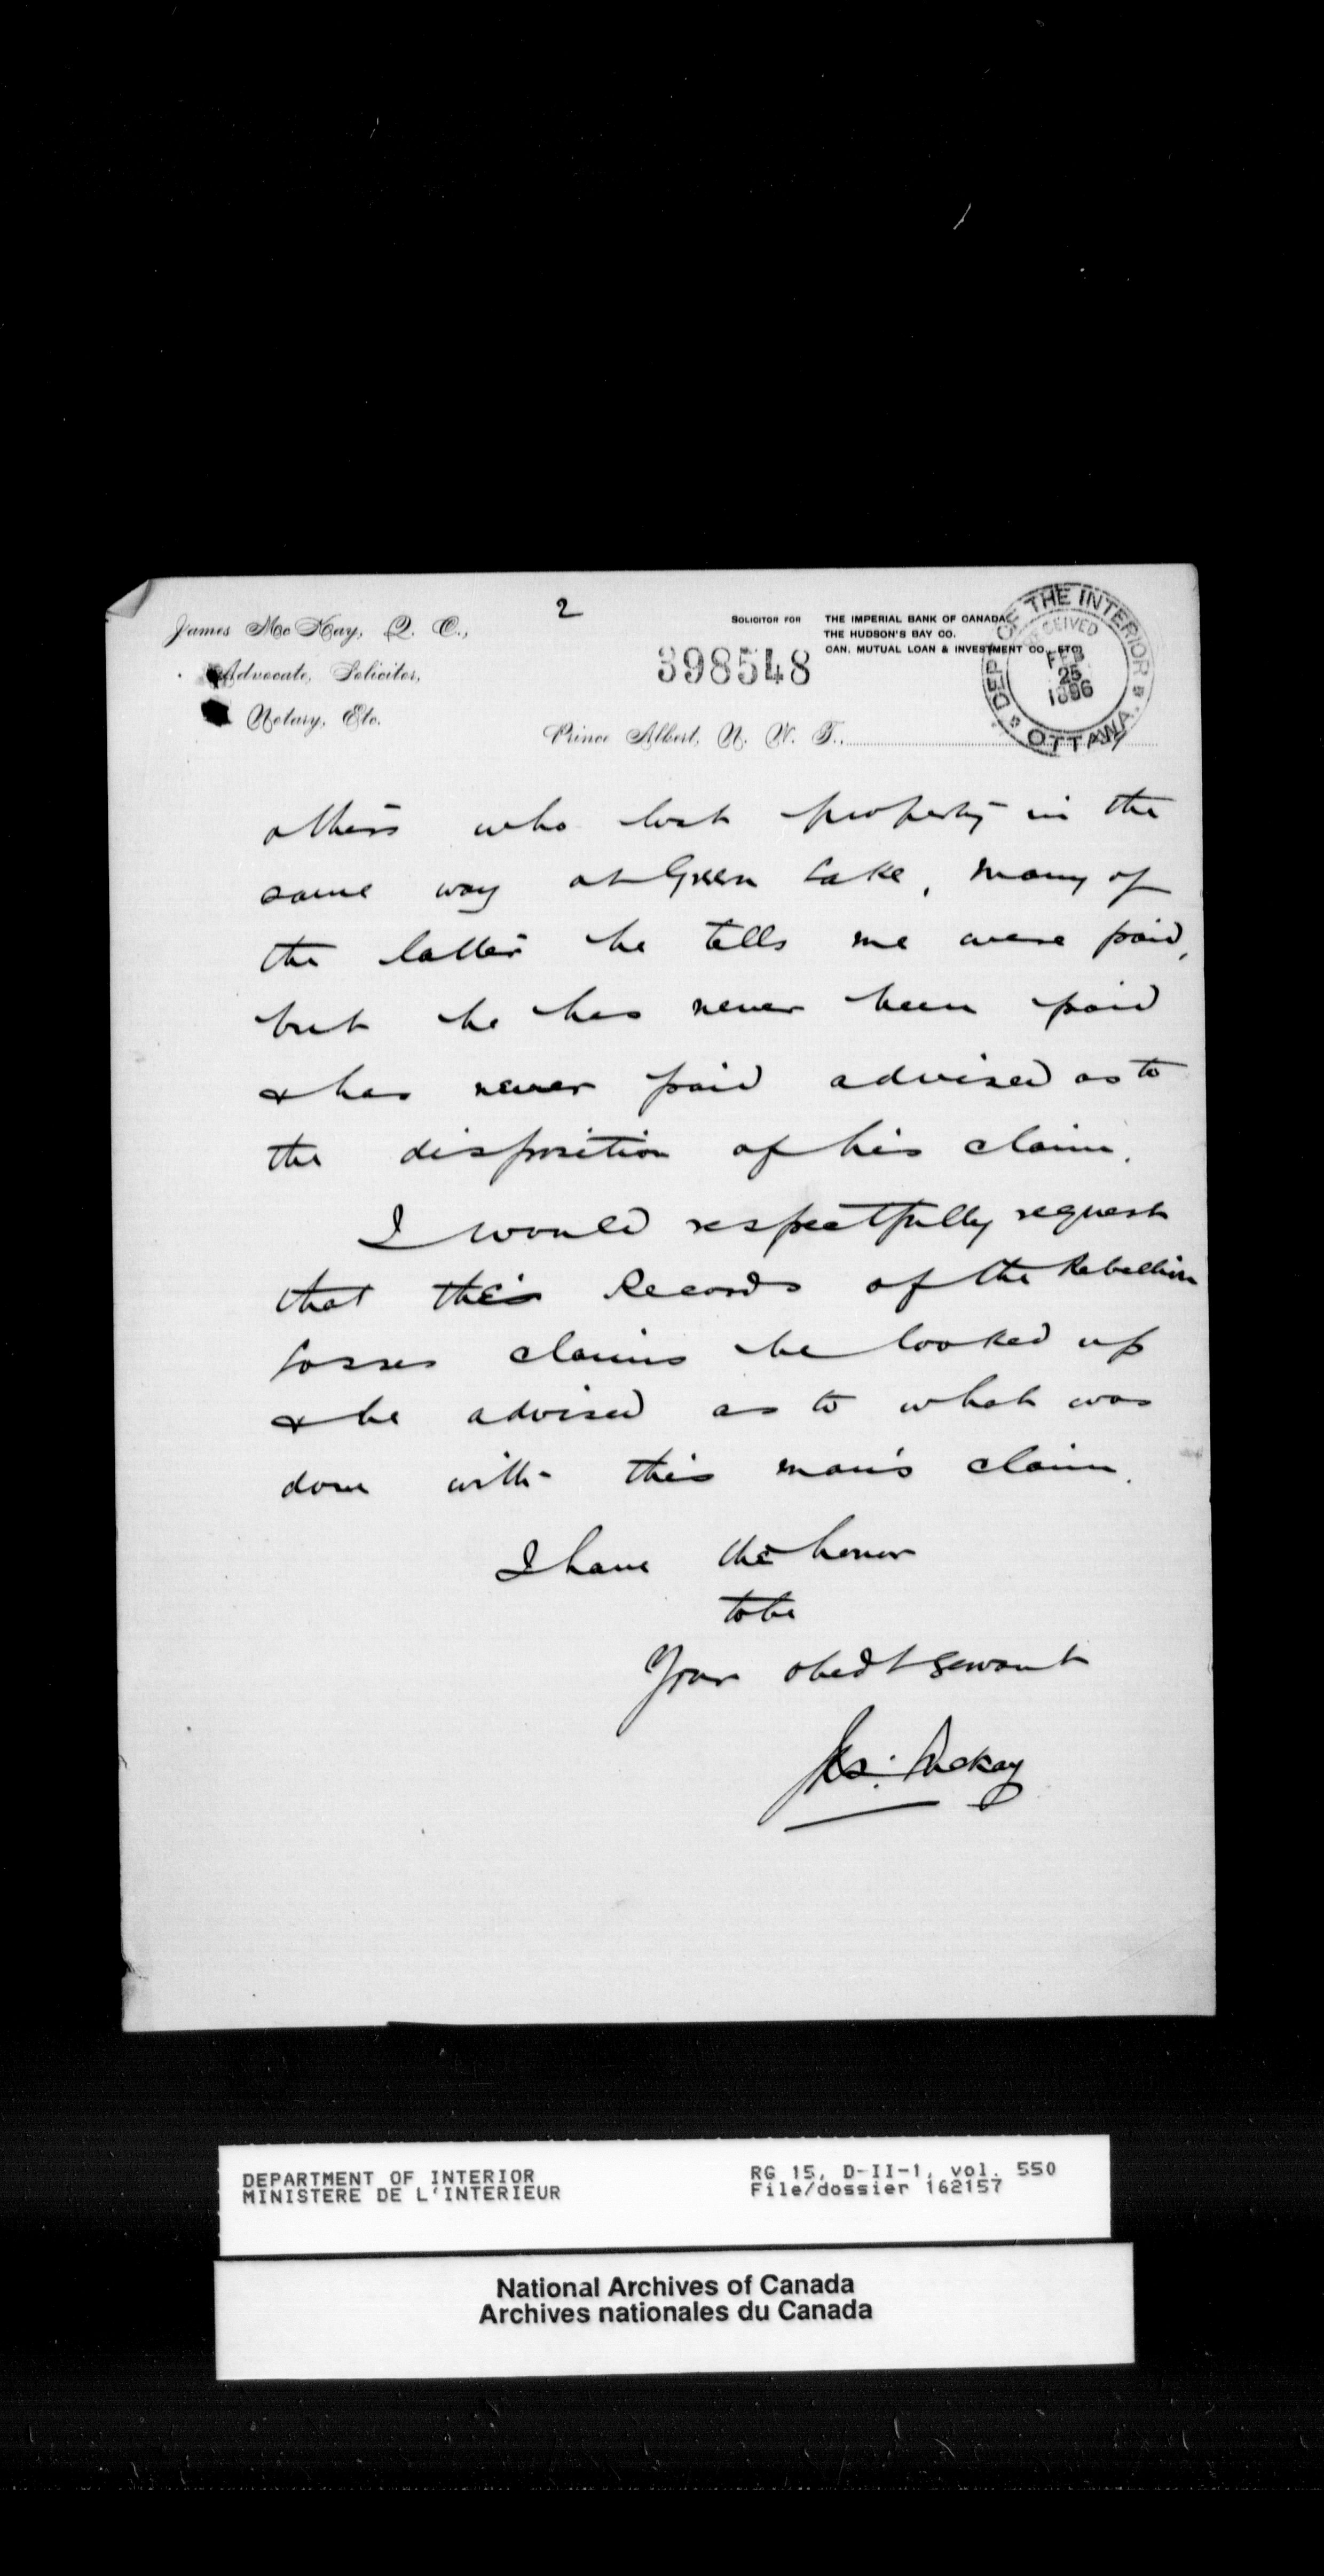 2
James McKay, Q. C.,
Advocate, Solicitor,
Notary, Etc.
SOLICITOR FOR THE IMPERIAL BANK OF CANADA
THE HUDSON'S BAY CO.
CAN. MUTUAL LOAN & INVESTMENT CO., ETC.
398548
DEPT OF THE INTERIOR
RECEIVED
FEB
25
1896
OTTAWA.
Prince Albert, N. W. T.,
others who lost property in the
same way at Green Lake, many of
the latter he tells me were paid,
but he has never been paid
& has never paid advised as to
the disposition of his claim.
I would respectfully request
that the Records of the Rebellion
losses claims be looked up
& be advised as to what was
done with this man's claim.
I have the honor
to be
Your obedt servant
Jas. McKay
DEPARTMENT OF INTERIOR
MINISTERE DE L'INTERIEUR
RG 15, D-II-1, vol. 550
File/dossier 162157
National Archives of Canada
Archives nationales du Canada